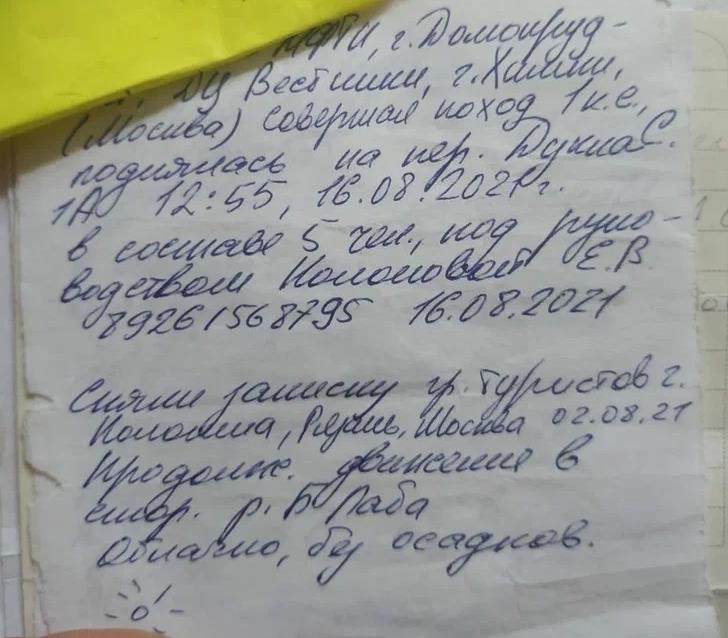 МФТИ, г. Долгопруд-
й, ДЦ Вестники, г. Химки,
(Москва) совершая поход 1 к.с.,
поднялась на пер. Дукка С.
1А 12:55, 16.08.2021 г.
в составе 5 чел., под руко-
водством Е.В.
89261568795 16.08.2021
Сняли записку гр. туристов г.
Коломна, Рязань, Москва 02.08.21
Продолж. движение в
стор. р. Б Лаба
Облачно, без осадков.